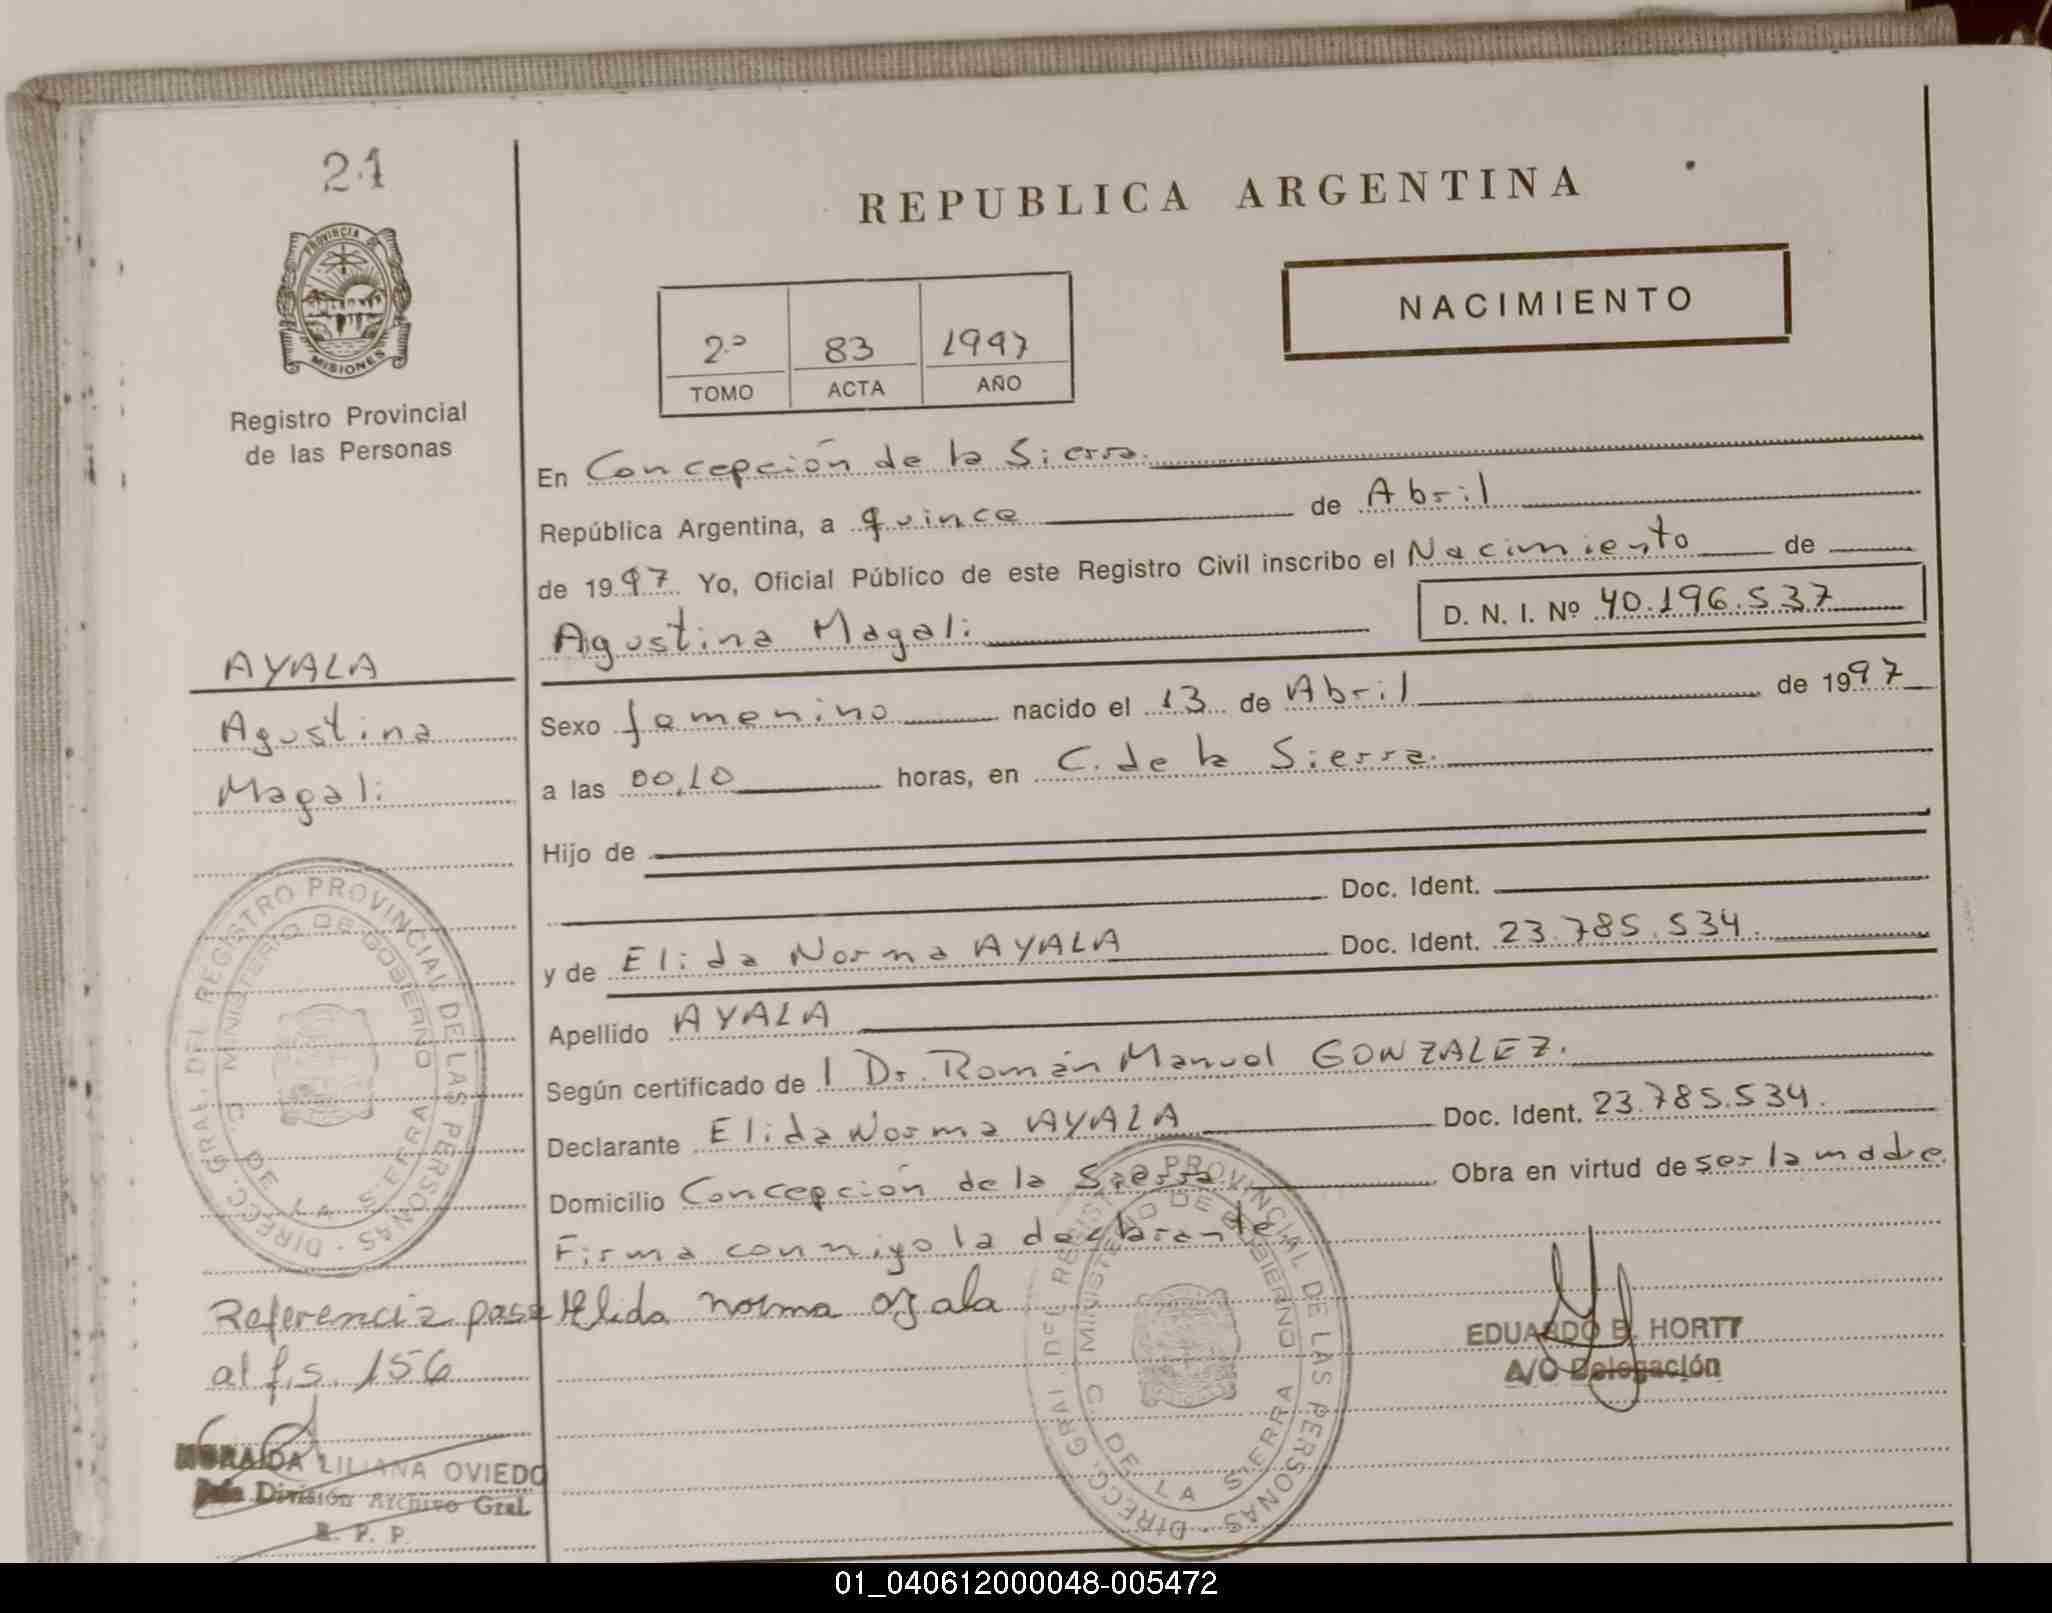 21
PROVINCIA DE
MISIONES
Registro Provincial
de las Personas
REPUBLICA ARGENTINA
NACIMIENTO
2º 83 1997
TOMO ACTA AÑO
En Concepción de la Sierra.
República Argentina, a quince de Abril
de 1997 Yo, Oficial Público de este Registro Civil inscribo el Nacimiento de
Agustina Magali D. N. I. Nº 40.196.537
AYALA
Agustina
Magali
Sexo femenino nacido el 13 de Abril de 1997
a las 00,10 horas, en C. de la Sierra.
Hijo de
Doc. Ident.
y de Elida Norma AYALA Doc. Ident. 23.785.534.
Apellido AYALA
Según certificado de l Dr. Román Manuel GONZALEZ.
Declarante Elida Norma AYALA Doc. Ident. 23.785.534.
Domicilio Concepción de la Sierra Obra en virtud de ser la madre.
Firma conmigo la declarante.
Elida norma ayala
DIRECC. GRAL. DEL REGISTRO PROVINCIAL DE LAS PERSONAS
MINISTERIO DE GOBIERNO
C. DE LA SIERRA
Referencia pasa
al f.s. 156
LILIANA OVIEDO
División Archivo Gral.
R. P. P.
DIRECC. GRAL. DEL REGIST PROVINCIAL DE LAS PERSONAS
MINISTERIO DE GOBIERNO
C. DE LA SIERRA
EDUARDO B. HORTT
A/C Delegación
01_040612000048-005472